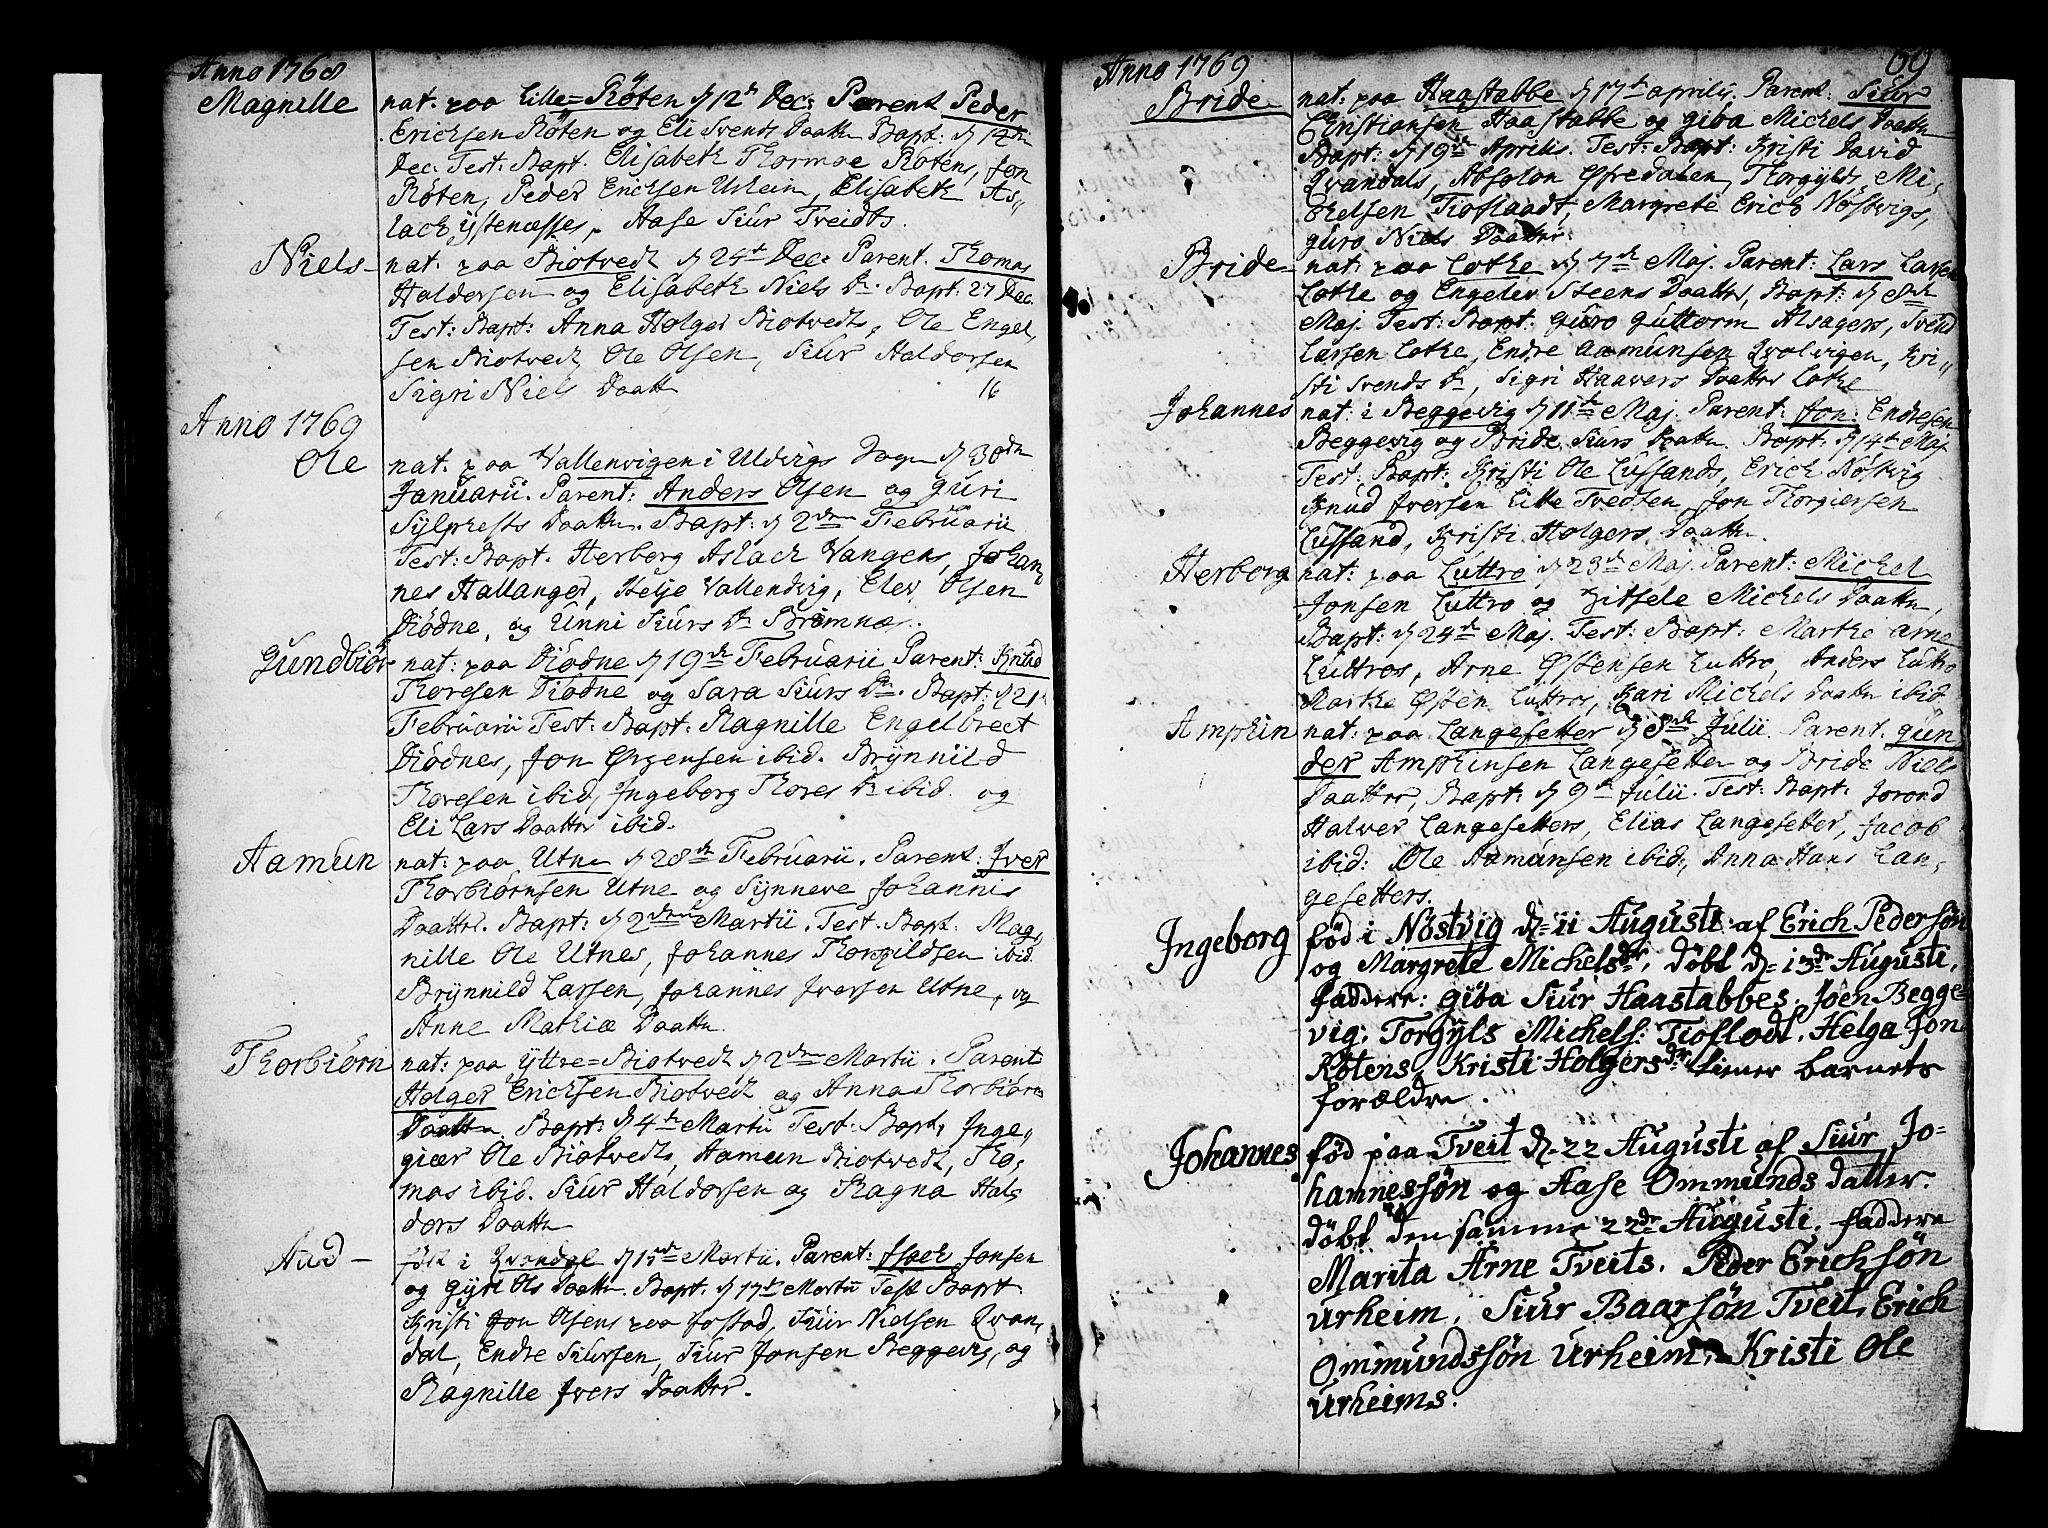 Anno 1768
Magnille nat: paa Lille=Röten d 12t Dec: Parent Peder
Erichsen Röten og Eli Svends Daatter Bapt: d 14de
Dec: Test: Bapt. Elisabeth Thormoe Rötens, Jon
Röten, Peder Erichsen Urheim, Elisabeth As„
lach ystenæsses, Aase Siur Tveidts.
Niels nat: paa Biotvedt d 24t Dec: Parent. Thomas
Haldorsen og Elisabeth Niels Dr. Bapt: 27 Dec.
Test: Bapt: Anna Holger Biotvedts, Ole Engel„
sen Biotvedt, Ole Olsen, Siur Haldorsen
Sigri Niels Daatter 16
Anno 1769
Ole nat: paa Vallenvigen i Uldvigs Sogn d 30dn
Januarii. Parent: Anders Olsen og Guri
Sylfhests Daatter. Bapt: d 2den Februarii
Test: Bapt. Herborg Aslach Vangens, Johan„
nes Hallanger, Helje Vallendvig, Elev Olsen
Diödne, og Unni Siurs Dr. Brimnæs.
Gundbiör nat: paa Diödne d 19de Februarii Parent: Knud
Thoresen Diödne og Sara Siurs Dr. Bapt: d 21t
Februarii Test: Bapt: Ragnille Engelbrect
Diödnes, Jon Ørgensen ibid. Brÿnnild
Thoresen ibid, Ingeborg Thores Dr ibid. og
Eli Lars Daatter ibid.
Aamun nat: paa Utne d 28de Februarii. Parent: Iver
Thorbiörnsen Utne og Synneve Johannis
Daatter. Bapt: d 2den Martii. Test: Bapt: Mag„
nille Ole Utnes, Johannes Thorgildsen ibid.
Brÿnnild Larsen, Johannes Iversen Utne, og
Anne Mathiæ Daatter.
Thorbiörn nat: paa Yttre=Biotvedt d 2den Martii. Parent:
Holger Erichsen Biotvedt og Anna Thorbiörns
Daatter. Bapt: d 4de Martii Test: Bapt, Inge„
giær Ole Biotvedts, Aamun Biotvedt, Tho„
mas ibid. Siur Haldorsen og Ragna Hal„
dors Daatter
Aad – föd i Qvandal d 15de Martii. Parent: Isach Jonsen
og Gÿri Ols Daatter. Bapt. d 17t Martii Test Bapt:
Kristi Jon Olsens paa Jostad, Siur Nielsen Qvan„
dal, Endre Siursen, Siur Jonsen Beggevig, og
Ragnille Ivers Daatter.
69
Anno 1769
Bride nat: paa Haastabbe d 17t aprilis. Parent: Siur
Christiansen Haastabbe og Giba Michels Daatter
Bapt: d 19de Aprilis. Test: Bapt: Kristi David
Qvandals, Absolon Øfredalen, Thorgÿls Mi„
chelsen Tioflaadt, Margrete Erich Nöstvigs,
Guro Niels Daatter.
Bride nat: paa Lothe d 7de Maj. Parent: Lars Larsen
Lothe og Engelev Steens Daatter, Bapt: d 8de
Maj. Test: Bapt: Guro Guttorm Alsagers, Svend
Larsen Lothe, Endre Aamunsen Qvalvigen, Kri„
sti Svends Dr, Sigri Haavers Daatter Lothe
Johannes nat: i Beggevig d 11te Maj. Parent: Jon: Endresen
Beggevig og Bride Siurs Daatter. Bapt: d 14t Maj
Test: Bapt: Kristi Ole Lussands, Erich Nöstvig
Knud Iversen Litte Tvedten, Jon Thorgiersen
Lussand, Kristi Holgers Daatter.
Herborg nat: paa Luttro d 23de Maj. Parent: Michel
Jonsen Luttro og Zitsele Michels Daatter,
Bapt: d 24de Maj. Test: Bapt: Marthe Arne
Luttros, Arne Østensen Luttro, Anders Luttro
Marthe Østen Luttros, Kari Michels Daatter ibid.
Amphin nat: paa Langesetter d 8de Julii. Parent. Gun
der Amphinsen Langesetter og Bride Niels
Daatter, Bapt: d 9de Julii. Test: Bapt: Jorond
Halver Langesetters, Elias Langesetter, Jacob
ibid: Ole Aamunsen ibid:, Anna Hans Lan„
gesetters.
Ingeborg föd i Nöstvig d= 11 Augusti af Erich Pedersön
og Margrete Michelsdr, döbt d= 13de Augusti,
faddere: Giba Siur Haastabbes, Joen Begge=
vig, Torgÿls Michels: Tioflodt, Helga Jon
Rötens, Kristi Holgersdr tiener barnets
forældre.
Johannes föd paa Tveit d= 22 Augusti af Siur Jo=
hannessön og Aase Ommunds datter.
döbt den samme 22de Augusti, faddere
Marita Arne Tveits, Peder Erichsön
Urheim, Siur Baarsön Tveit, Erich
Ommundssön Urheim, Kristi Ole
Urheims.